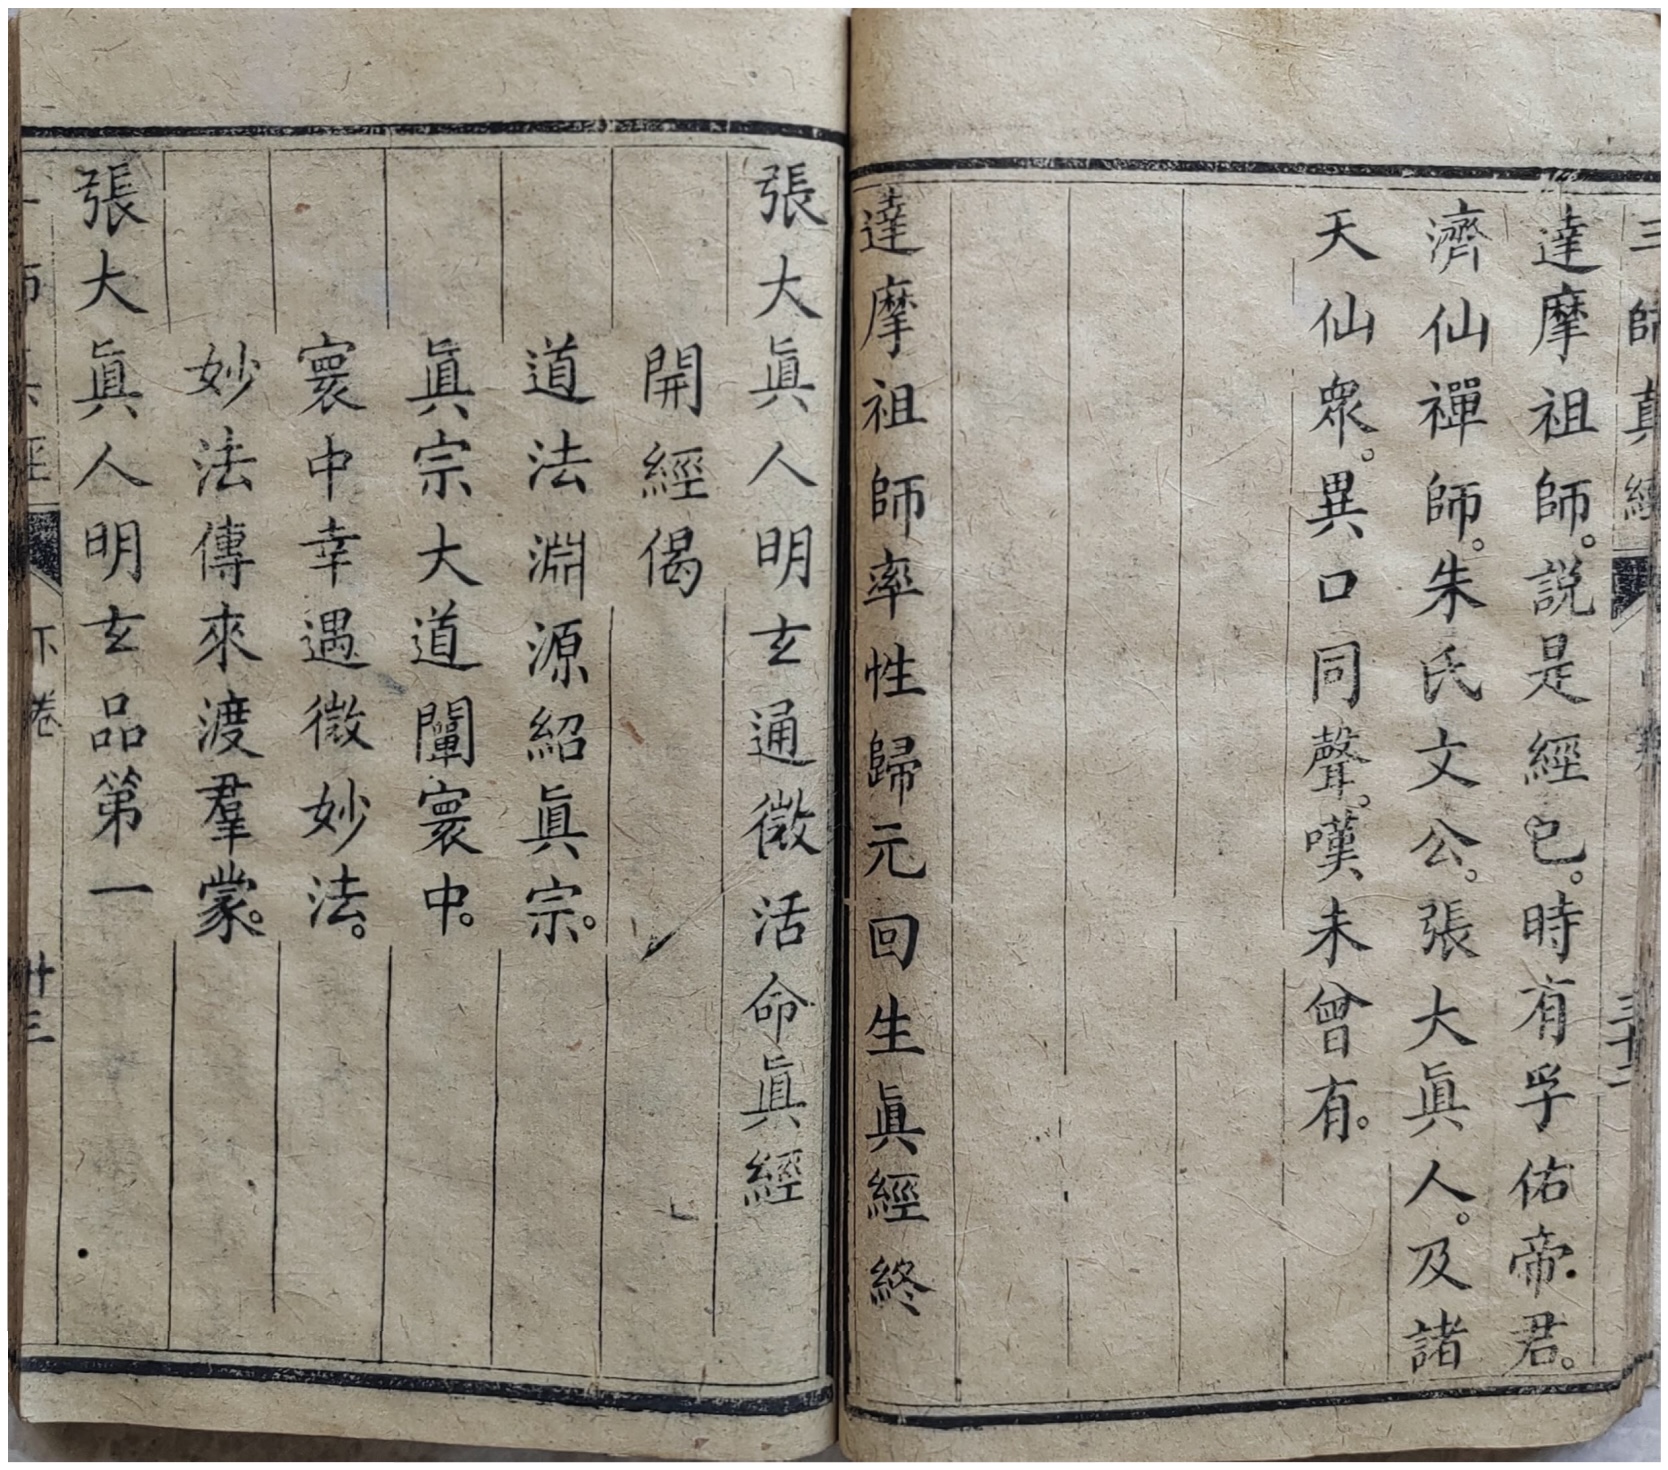 三師真經
三十二
達摩祖師。說是經已。時有孚佑帝君。
濟仙禪師。朱氏文公。張大眞人。及諸
天仙衆。異口同聲。嘆未曾有。
達摩祖師率性歸元回生眞經終
張大眞人明玄通微活命眞經
開經偈
道法淵源紹眞宗。
眞宗大道闡寰中。
寰中幸遇微妙法。
妙法傳來渡羣蒙。
張大眞人明玄品第一
下卷
卅三